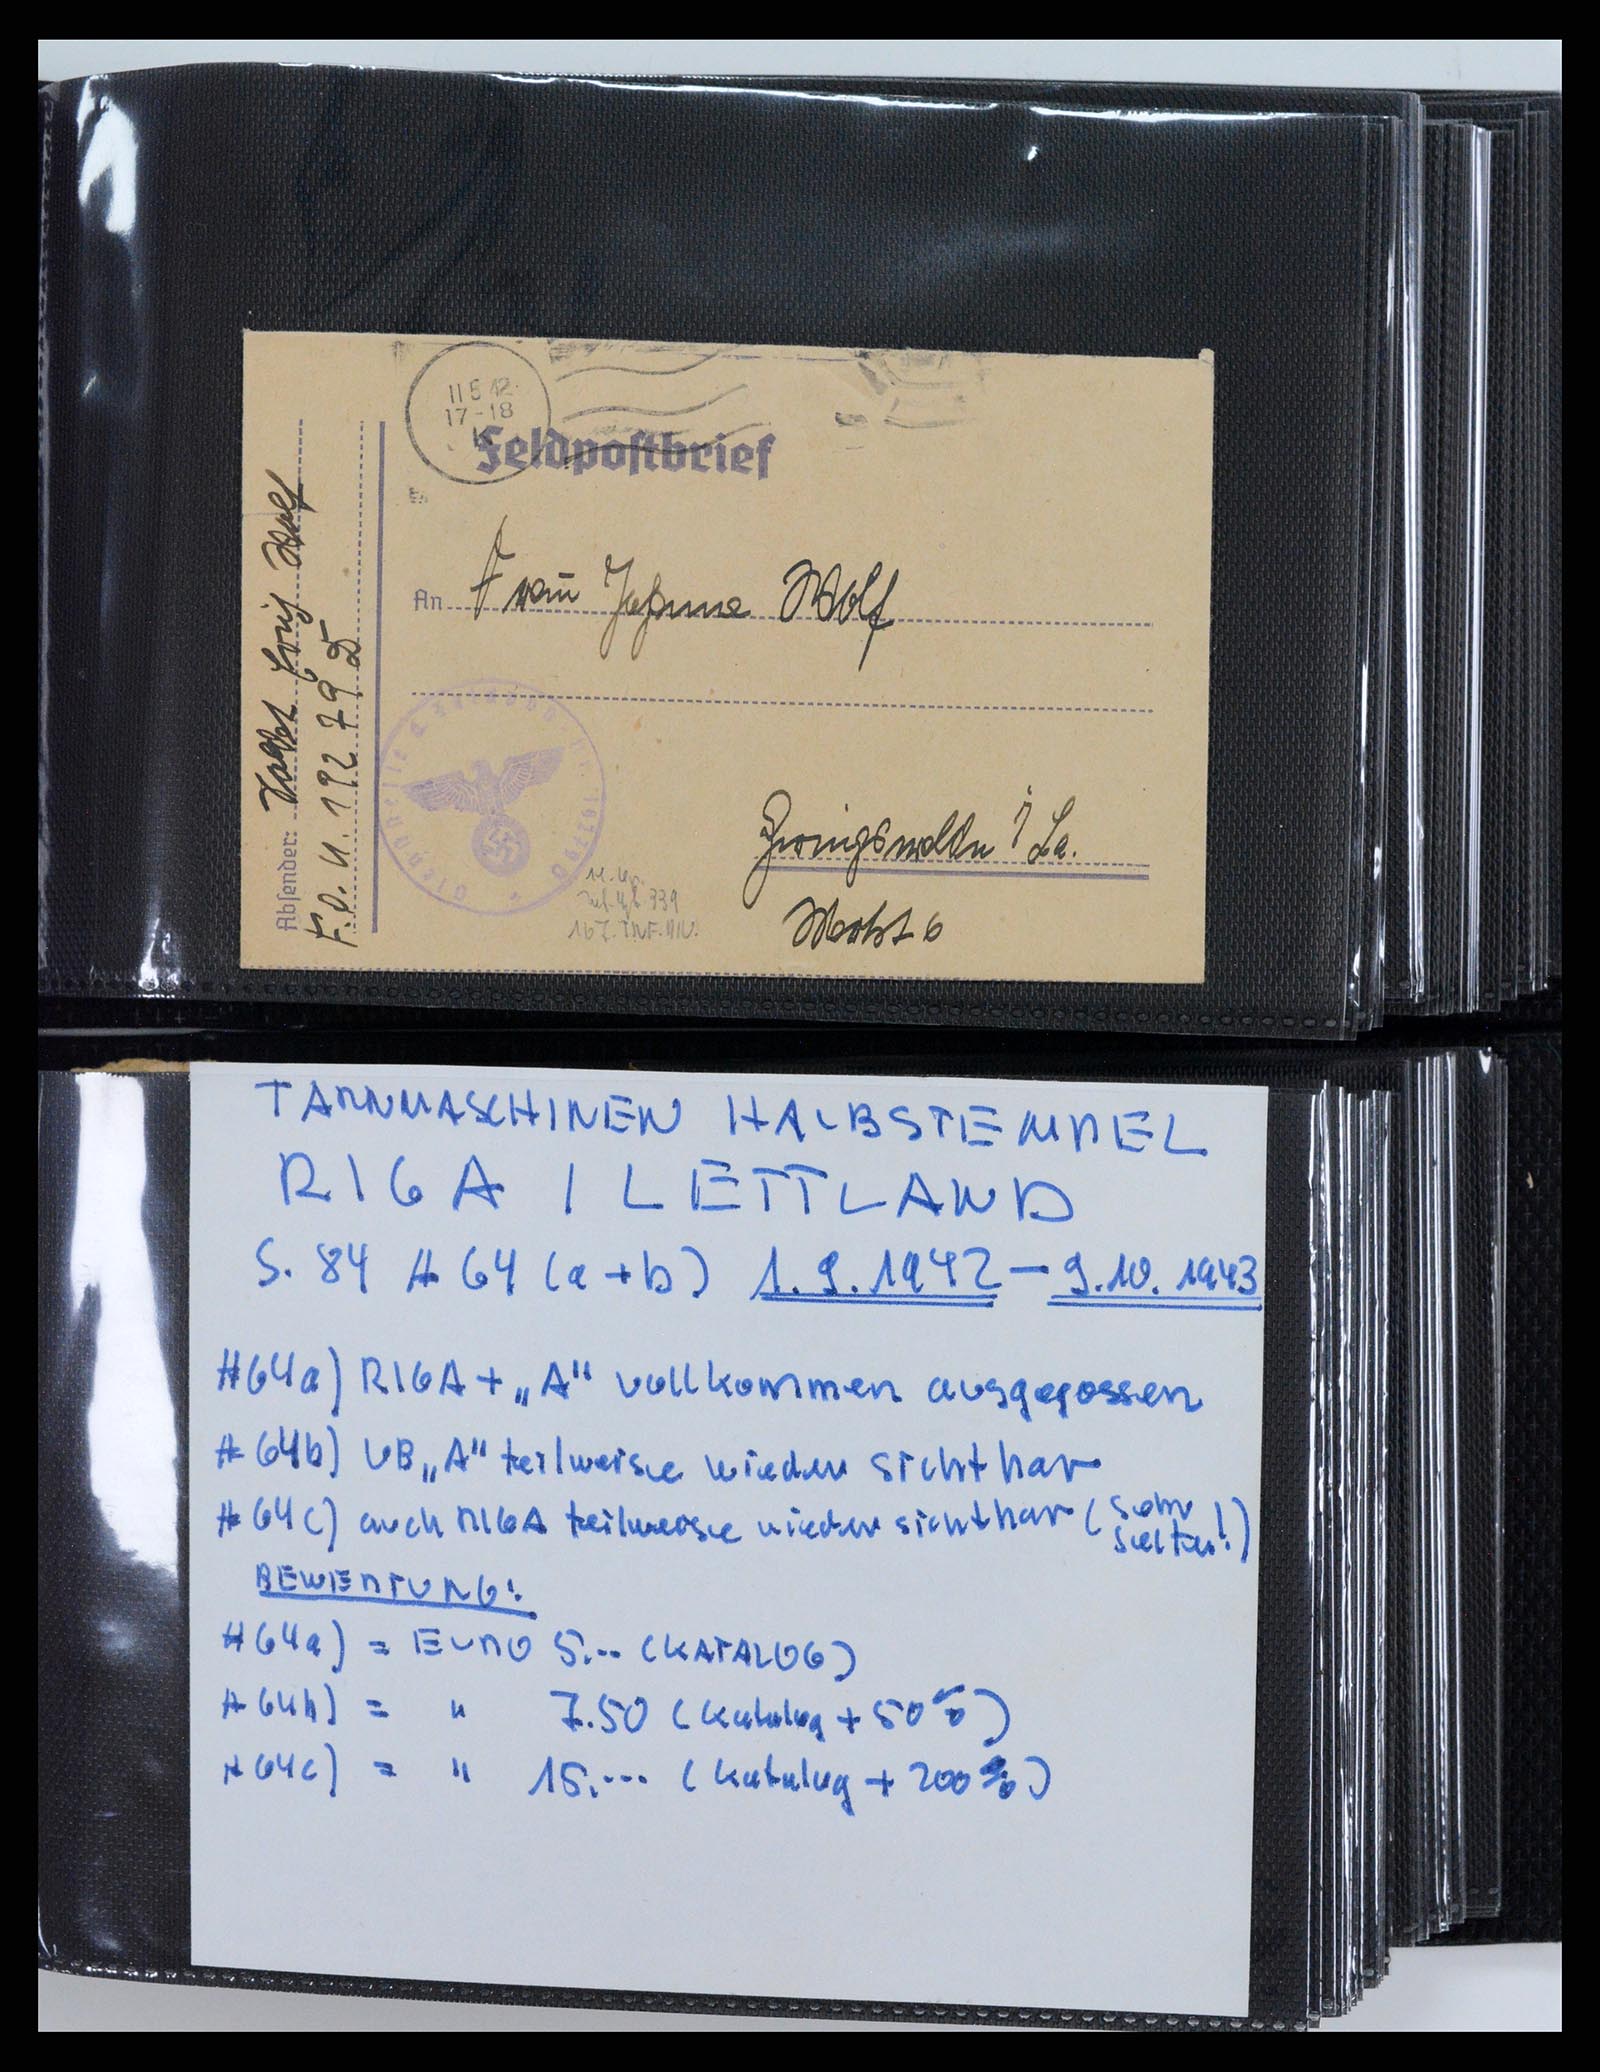 11 5 42
17-18
Feldpostbrief
An Frau Johanna Wolf
Absender:
Wolf
F.P. N. 19279 D
Dienststelle d. Feldpost Nr. 19279 D
i Sa.
Markt 6
339
167. INF. DIV.
TARNMASCHINEN HALBSTEMPEL
RIGA / LETTLAND
S. 84 # 64 (a+b) 1.9.1942 – 9.10.1943
#64a) RIGA + „A“ vollkommen ausgegossen
#64b) UB „A“ teilweise wieder sichtbar
#64c) auch RIGA teilweise wieder sichtbar (sehr selten!)
BEWERTUNG:
#64a) = EURO 5.-- (KATALOG)
#64b) = " 7.50 (Katalog + 50%)
#64c) = " 15.--- (Katalog + 200%)